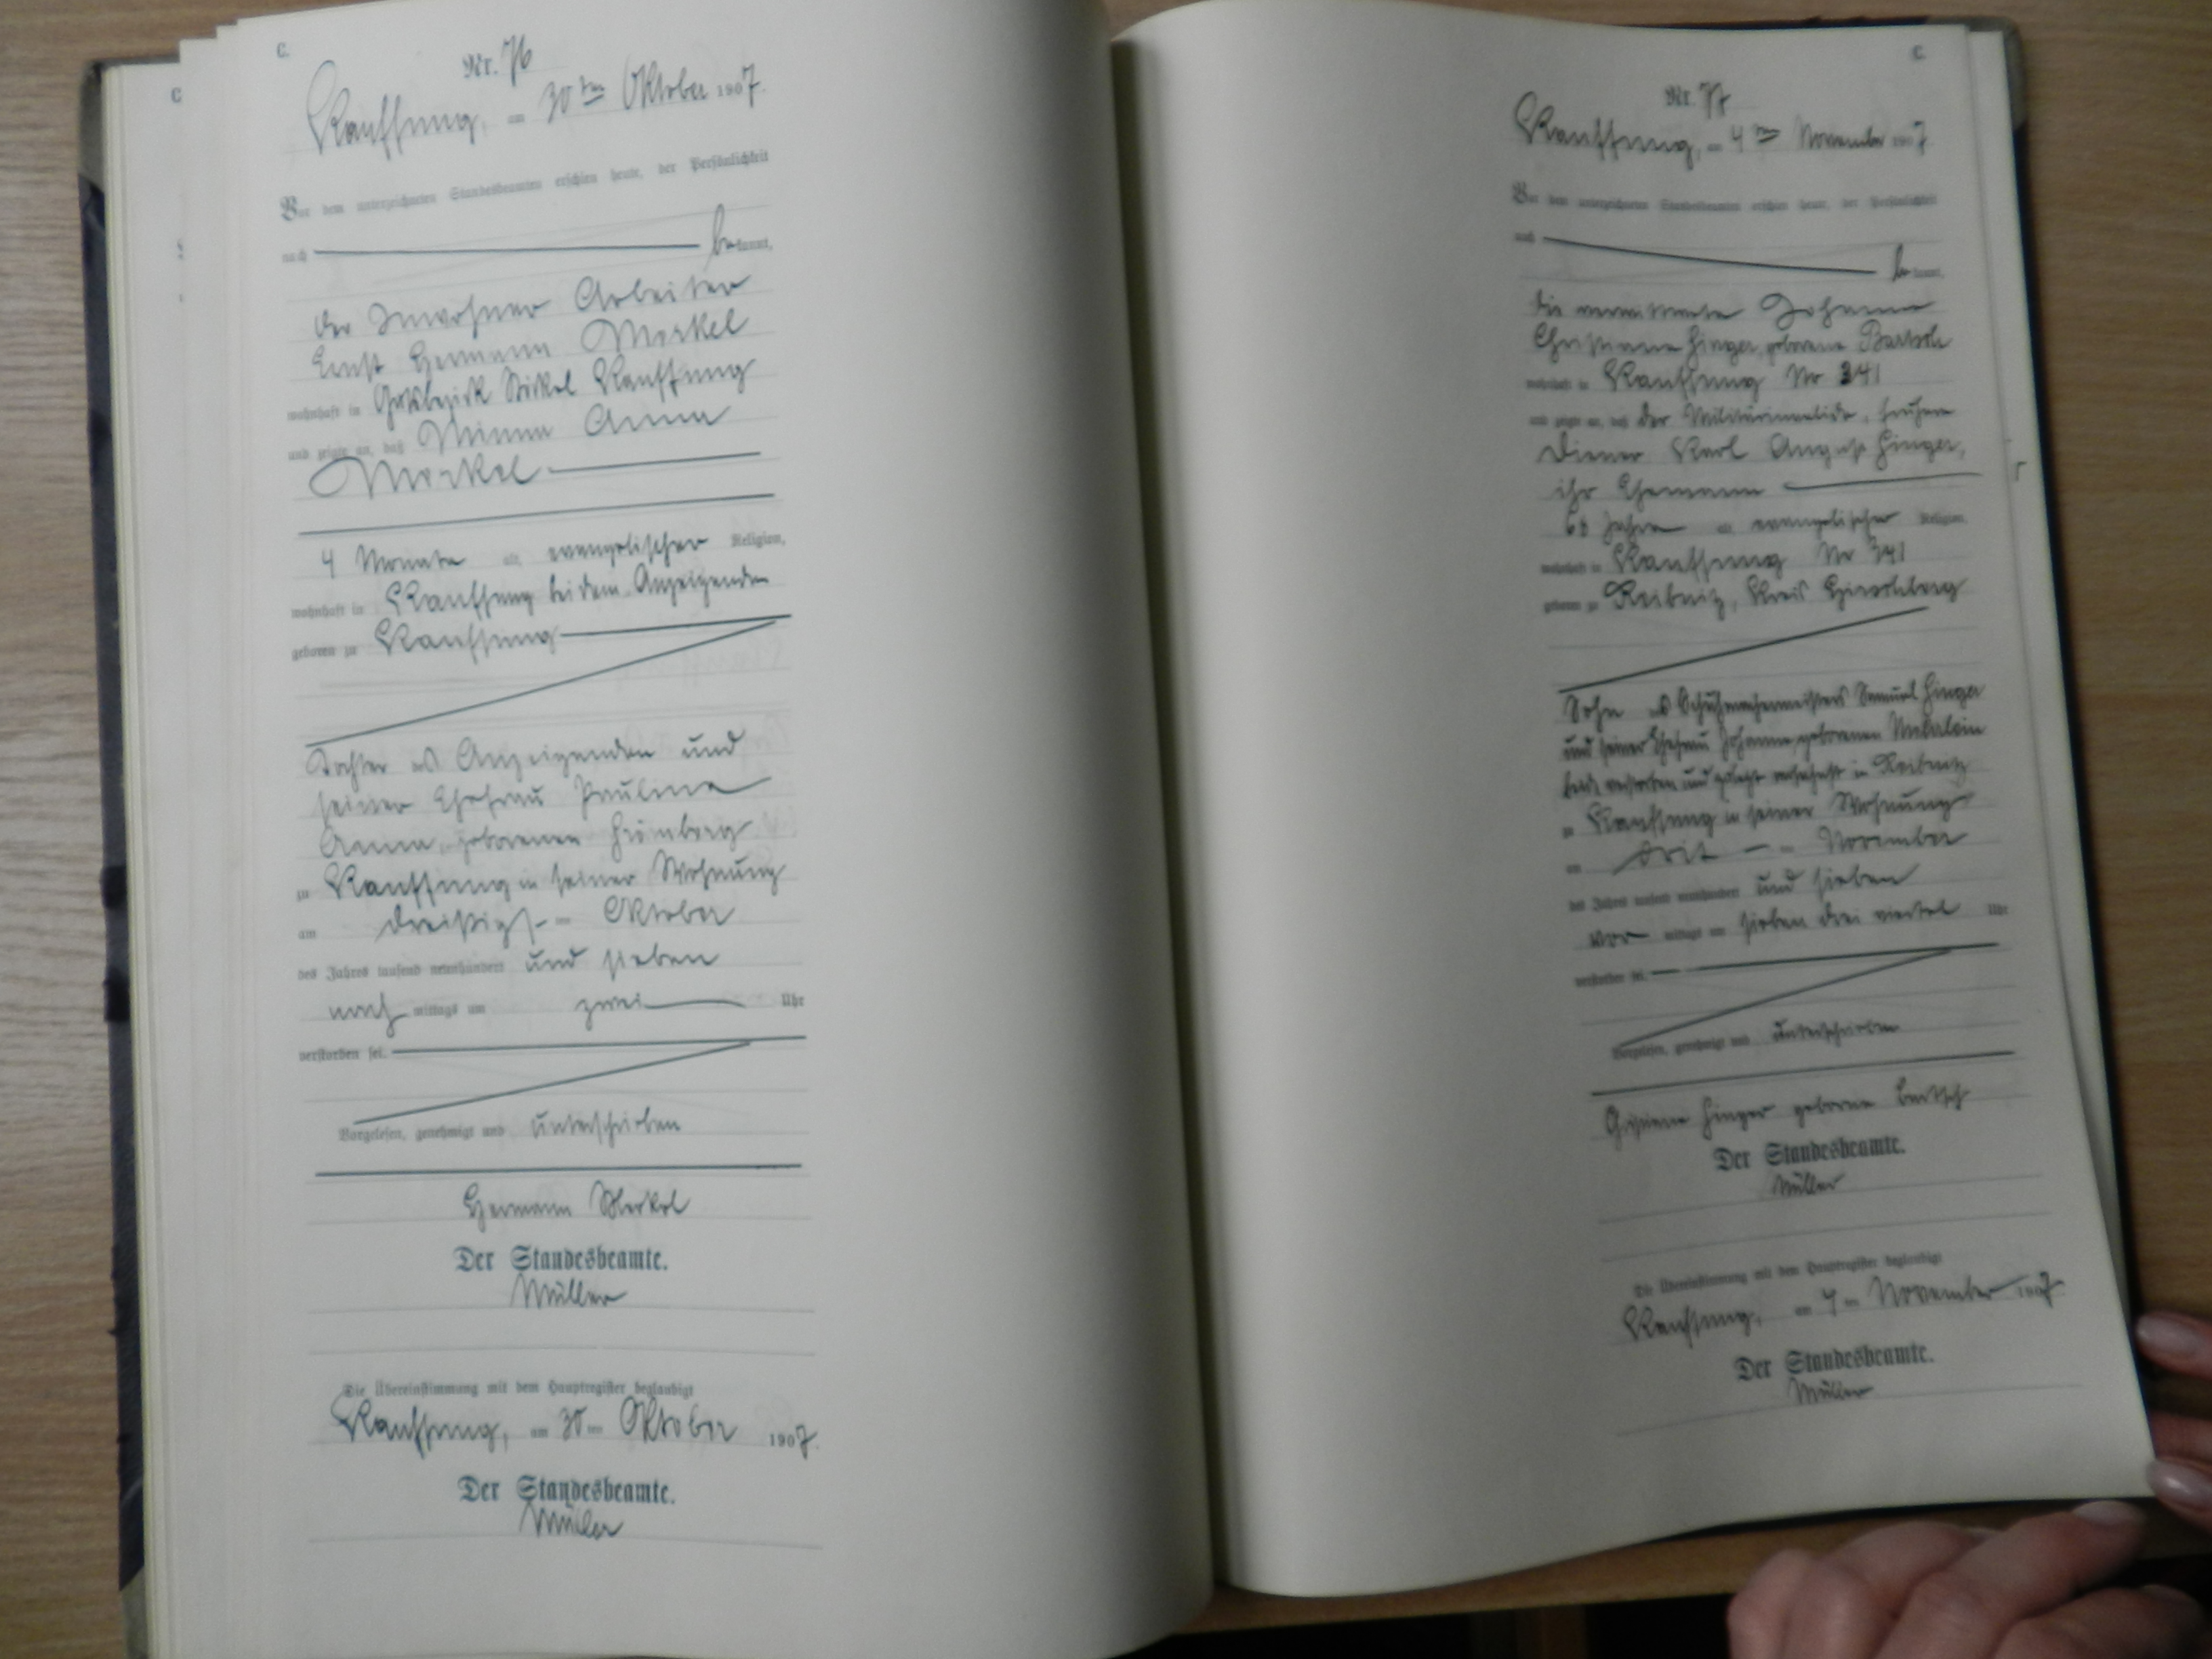 C.
Nr. 76
Kauffung, am 30ten Oktober 1907.
Vor dem unterzeichneten Standesbeamten erschien heute, der Persönlichkeit
nach bekannt,
der Inwohner Arbeiter
Ernst Hermann Merkel
wohnhaft in Gutsbezirk Stöckel Kauffung
und zeigte an, daß Minna Anna
Merkel
4 Monate alt, evangelischer Religion,
wohnhaft in Kauffung bei dem Anzeigenden
geboren zu Kauffung
Tochter des Anzeigenden und
seiner Ehefrau Pauline
Anna, geborenen
zu Kauffung in seiner Wohnung
am dreißigsten Oktober
des Jahres tausend neunhundert und sieben
nachmittags um zwei Uhr
verstorben sei.
Vorgelesen, genehmigt und unterschrieben
Hermann Merkel
Der Standesbeamte.
Müller
Die Übereinstimmung mit dem Hauptregister beglaubigt
Kauffung, am 30ten Oktober 1907.
Der Standesbeamte.
Müller
C.
Nr. 77
Kauffung, am 4ten November 1907.
Vor dem unterzeichneten Standesbeamten erschien heute, der Persönlichkeit
nach bekannt,
die verwittwete Johanna
Christiane geborene Bartsch
wohnhaft in Kauffung Nr 341
und zeigte an, daß der Militärinvalide, frühere
Diener Karl August
ihr Ehemann
Jahre alt, evangelischer Religion,
wohnhaft in Kauffung Nr 341
geboren zu Reibnitz, Kreis Hirschberg
Sohn des Schuhmachermeisters Samuel
und seiner Ehefrau Johanne, geborenen
beide verstorben und zuletzt wohnhaft in Reibnitz
zu Kauffung in seiner Wohnung
am drit ten November
des Jahres tausend neunhundert und sieben
vormittags um sieben drei viertel Uhr
verstorben sei.
Vorgelesen, genehmigt und unterschrieben
geborene
Der Standesbeamte.
Müller
Die Übereinstimmung mit dem Hauptregister beglaubigt
Kauffung, am 4ten November 1907.
Der Standesbeamte.
Müller